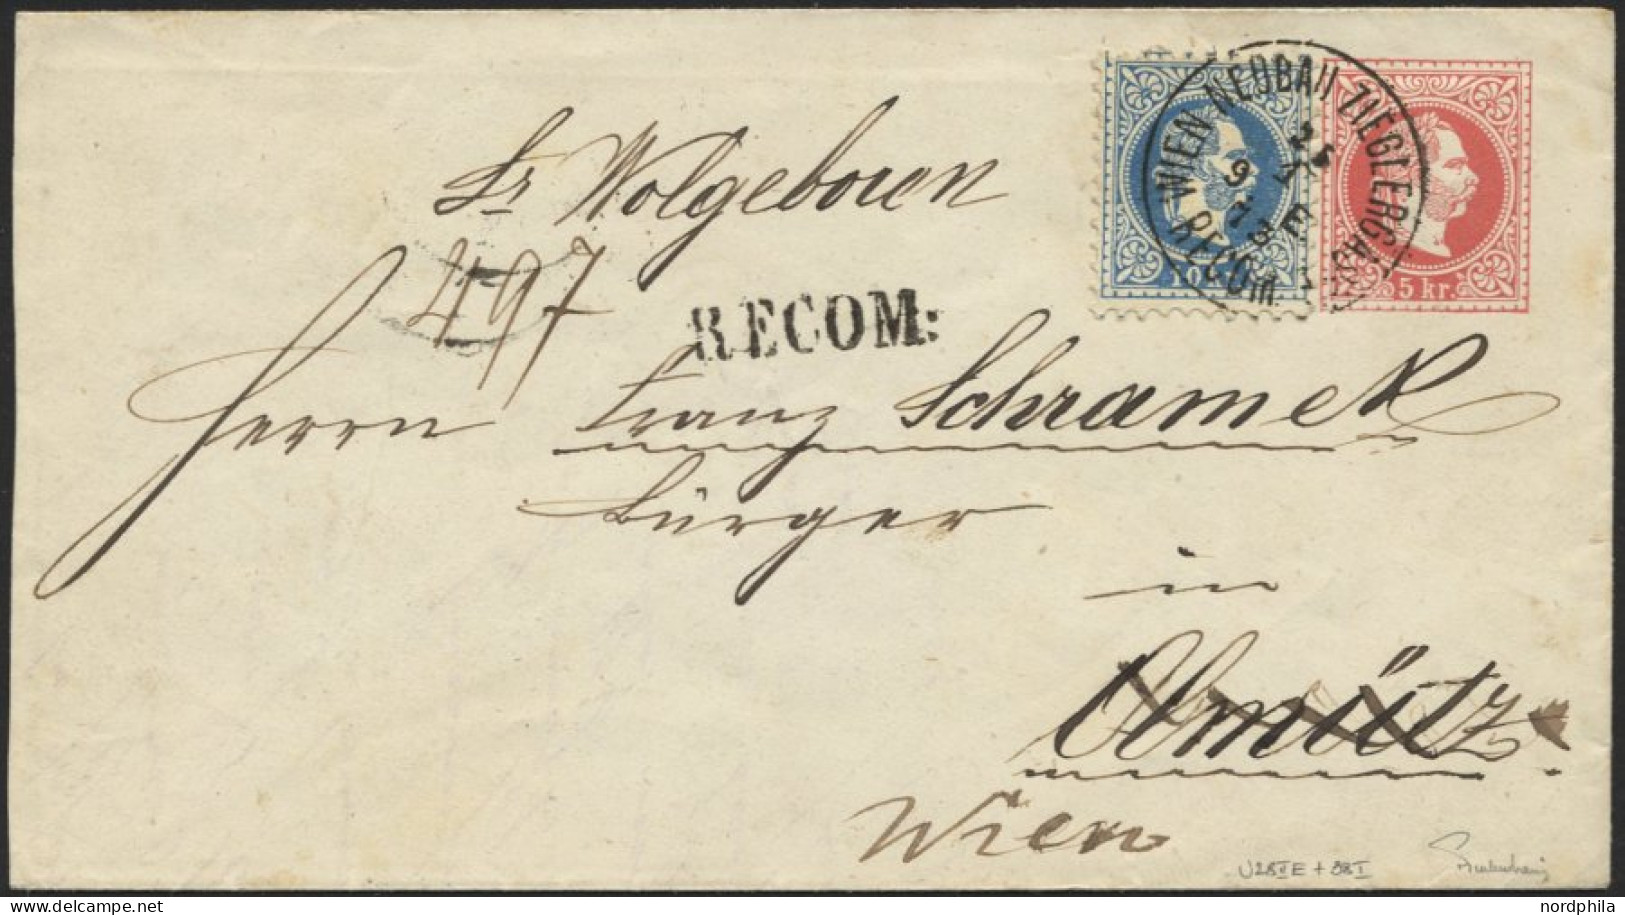 WIEN NEUBAU ZIEGLERGASSE
9
73
RECOM.
5 kr.
Sr Wolgeboren
497
RECOM:
Herrn Franz Schramek
Bürger
in
Olmütz
Wien
delcampe.net
nordphila